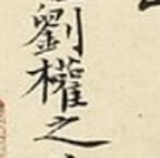 劉權之